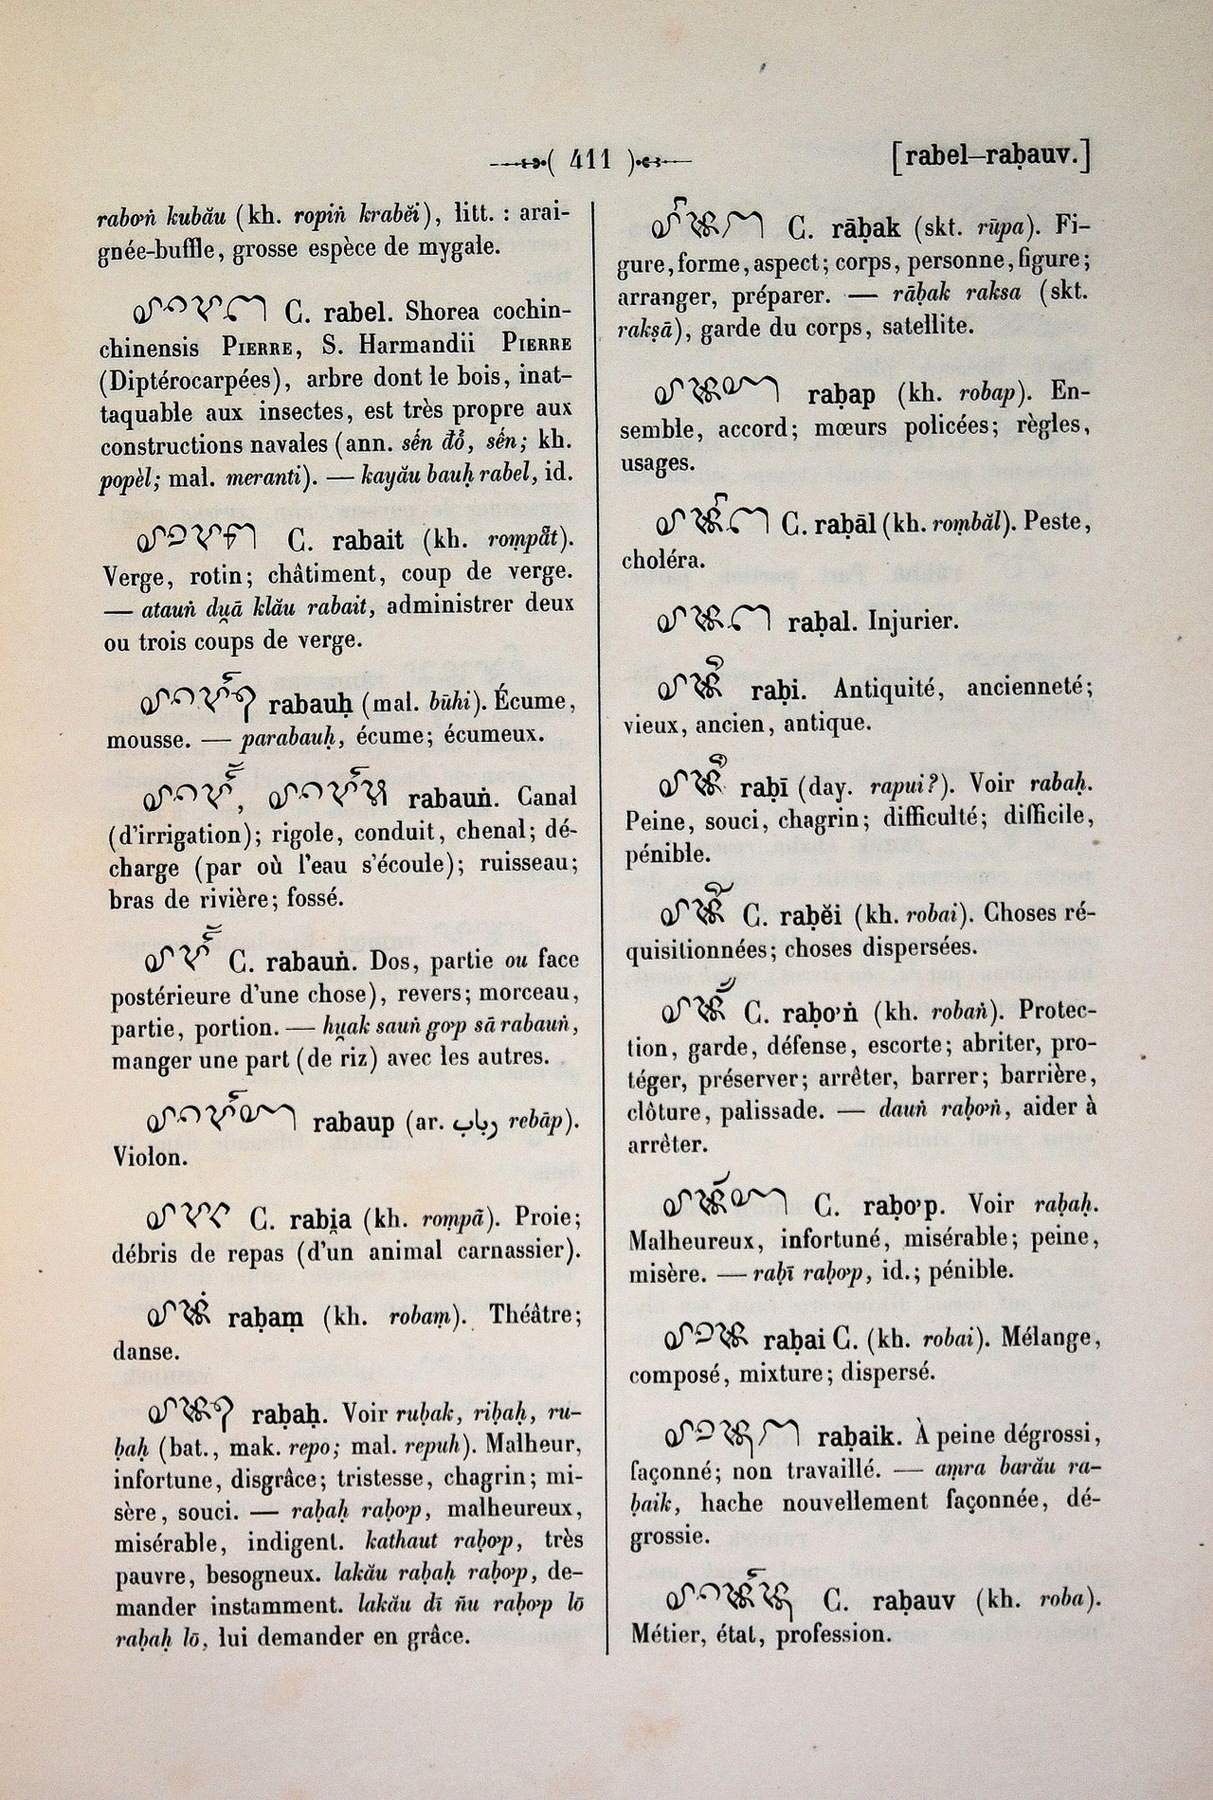 411
[rabel–raḅauv.]
rabơṅ kubău (kh. ropiṅ krabĕi), litt. : arai-
gnée-buffle, grosse espèce de mygale.
C. rabel. Shorea cochin-
chinensis PIERRE, S. Harmandii PIERRE
(Diptérocarpées), arbre dont le bois, inat-
taquable aux insectes, est très propre aux
constructions navales (ann. sến đỏ, sến; kh.
popèl; mal. meranti). — kayău bauḥ rabel, id.
C. rabait (kh.
Verge, rotin; châtiment, coup de verge.
— atauṅ dṷā klău rabait, administrer deux
ou trois coups de verge.
rabauḥ (mal. būhi). Écume,
mousse. — parabauḥ, écume; écumeux.
rabauṅ. Canal
(d'irrigation); rigole, conduit, chenal; dé-
charge (par où l'eau s'écoule); ruisseau;
bras de rivière; fossé.
C. rabauṅ. Dos, partie ou face
postérieure d'une chose), revers; morceau,
partie, portion. — hṷak sauṅ gơp sā rabauṅ,
manger une part (de riz) avec les autres.
rabaup (ar. رباب rebāp).
Violon.
C. rabi̭a (kh. roṃpā). Proie;
débris de repas (d'un animal carnassier).
raḅaṃ (kh. robaṃ). Théâtre;
danse.
raḅaḥ. Voir ruḅak, riḅaḥ, ru-
ḅaḥ (bat., mak. repo; mal. repuh). Malheur,
infortune, disgrâce; tristesse, chagrin; mi-
sère, souci. — raḅaḥ raḅơp, malheureux,
misérable, indigent. kathaut raḅơp, très
pauvre, besogneux. lakău raḅaḥ raḅơp, de-
mander instamment. lakău dī ñu raḅơp lō
raḅaḥ lō, lui demander en grâce.
C. rāḅak (skt. rūpa). Fi-
gure, forme, aspect; corps, personne, figure;
arranger, préparer. — rāḅak raksa (skt.
rakṣā), garde du corps, satellite.
raḅap (kh. robap). En-
semble, accord; mœurs policées; règles,
usages.
C. raḅāl (kh. roṃbăl). Peste,
choléra.
raḅal. Injurier.
raḅi. Antiquité, ancienneté;
vieux, ancien, antique.
raḅī (day. rapui?). Voir rabaḥ.
Peine, souci, chagrin; difficulté; difficile,
pénible.
C. raḅĕi (kh. robai). Choses ré-
quisitionnées; choses dispersées.
C. raḅơṅ (kh. robaṅ). Protec-
tion, garde, défense, escorte; abriter, pro-
téger, préserver; arrêter, barrer; barrière,
clôture, palissade. — dauṅ raḅơṅ, aider à
arrêter.
C. raḅơp. Voir raḅaḥ.
Malheureux, infortuné, misérable; peine,
misère. — raḅī raḅơp, id.; pénible.
raḅai C. (kh. robai). Mélange,
composé, mixture; dispersé.
raḅaik. À peine dégrossi,
façonné; non travaillé. — aṃra barău ra-
ḅaik, hache nouvellement façonnée, dé-
grossie.
C. raḅauv (kh. roba).
Métier, état, profession.